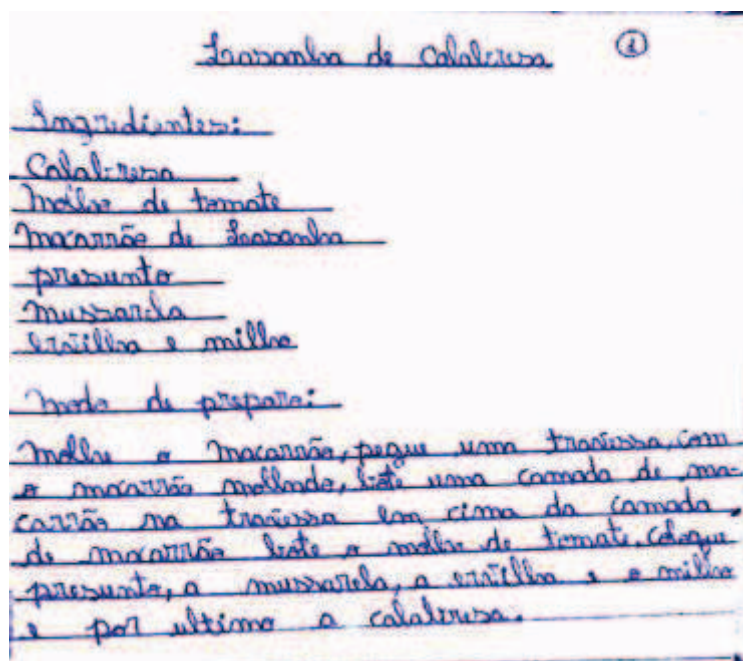 Lasanha de Calabresa ①
Ingredientes:
Calabresa
molho de tomate
macarrão de Lasanha
presunto
mussarela
ervilha e milho
modo de preparo:
molhe o macarrão, pegue uma travessa, com
o macarrão molhado, bote uma camada de ma-
carrão na travessa em cima da camada
de macarrão bote o molho de tomate, coloque
presunto, a mussarela, a ervilha e o milho
e por ultimo a calabresa.